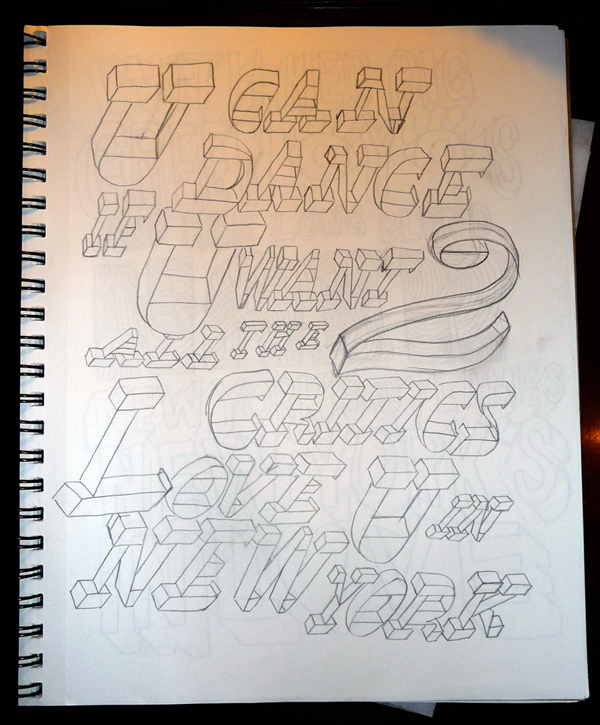 U CAN
DANCE
IF U WANT 2
ALL THE
CRITICS
LOVE U IN
NEW YORK